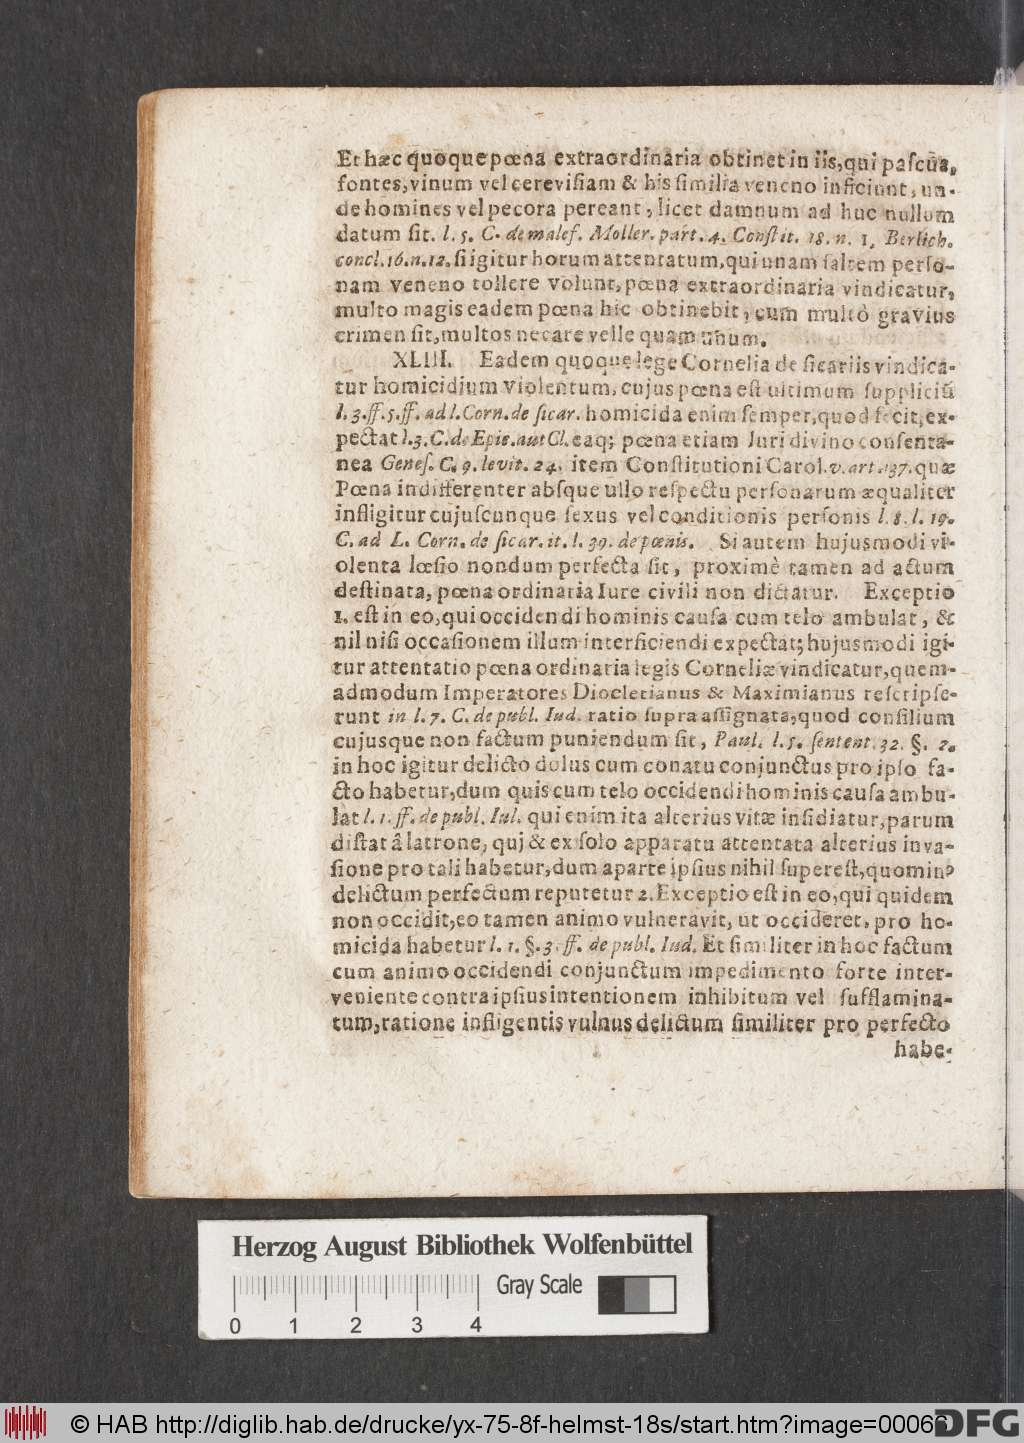 Et hæc quoque pœna extraordinaria obtinet in iis, qui paſcua,
fontes, vinum vel cereviſiam & his ſimilia veneno inficiunt, un-
de homines vel pecora pereant, licet damnum ad huc nullum
datum ſit. l. 5. C. de malef. Moller. part. 4. Conſtit. 18. n. 1. Berlich.
concl. 16. n. 12. ſi igitur horum attentatum, qui unam ſaltem perſo-
nam veneno tollere volunt, pœna extraordinaria vindicatur,
multo magis eadem pœna hic obtinebit, cum multò gravius
crimen ſit, multos necare velle quam unum.
XLIII. Eadem quoque lege Cornelia de ſicariis vindica-
tur homicidium violentum, cujus pœna eſt ultimum ſuppliciũ
l. 3. ff. 5. ff. ad l. Corn. de ſicar. homicida enim ſemper, quod fecit, ex-
pectat l. 3. C. de Epis. aut Cl. eaq; pœna etiam Juri divino conſenta-
nea Geneſ. C. 9. levit. 24. item Conſtitutioni Carol. v. art. 137. quæ
Pœna indifferenter abſque ullo reſpectu perſonarum æqualiter
infligitur cujuſcunque ſexus vel conditionis perſonis l. 8. l. 19.
C. ad L. Corn. de ſicar. it. l. 39. de pœnis. Si autem hujusmodi vi-
olenta lœſio nondum perfecta ſit, proximè tamen ad actum
deſtinata, pœna ordinaria Iure civili non dictatur. Exceptio
1. eſt in eo, qui occidendi hominis cauſa cum telo ambulat, &
nil niſi occaſionem illum interficiendi expectat; hujusmodi igi-
tur attentatio pœna ordinaria legis Corneliæ vindicatur, quem-
admodum Imperatores Diocletianus & Maximianus reſcripſe-
runt in l. 7. C. de publ. Iud. ratio ſupra aſſignata, quod conſilium
cujusque non factum puniendum ſit, Paul. l. 5. ſentent. 32. §. 2.
in hoc igitur delicto dolus cum conatu conjunctus pro ipſo fa-
cto habetur, dum quis cum telo occidendi hominis cauſa ambu-
lat l. 1. ff. de publ. Iul. qui enim ita alterius vitæ inſidiatur, parum
diſtat â latrone, quj & ex ſolo apparatu attentata alterius inva-
ſione pro tali habetur, dum a parte ipſius nihil ſupereſt, quominꝰ
delictum perfectum reputetur 2. Exceptio eſt in eo, qui quidem
non occidit, eo tamen animo vulneravit, ut occideret, pro ho-
micida habetur l. 1. §. 3. ff. de publ. Iud. Et ſimiliter in hoc factum
cum animo occidendi conjunctum impedimento forte inter-
veniente contra ipſius intentionem inhibitum vel ſufflamina-
tum, ratione infligentis vulnus delictum ſimiliter pro perfecto
habe-
Herzog August Bibliothek Wolfenbüttel
Gray Scale
0 1 2 3 4
© HAB http://diglib.hab.de/drucke/yx-75-8f-helmst-18s/start.htm?image=00066
DFG